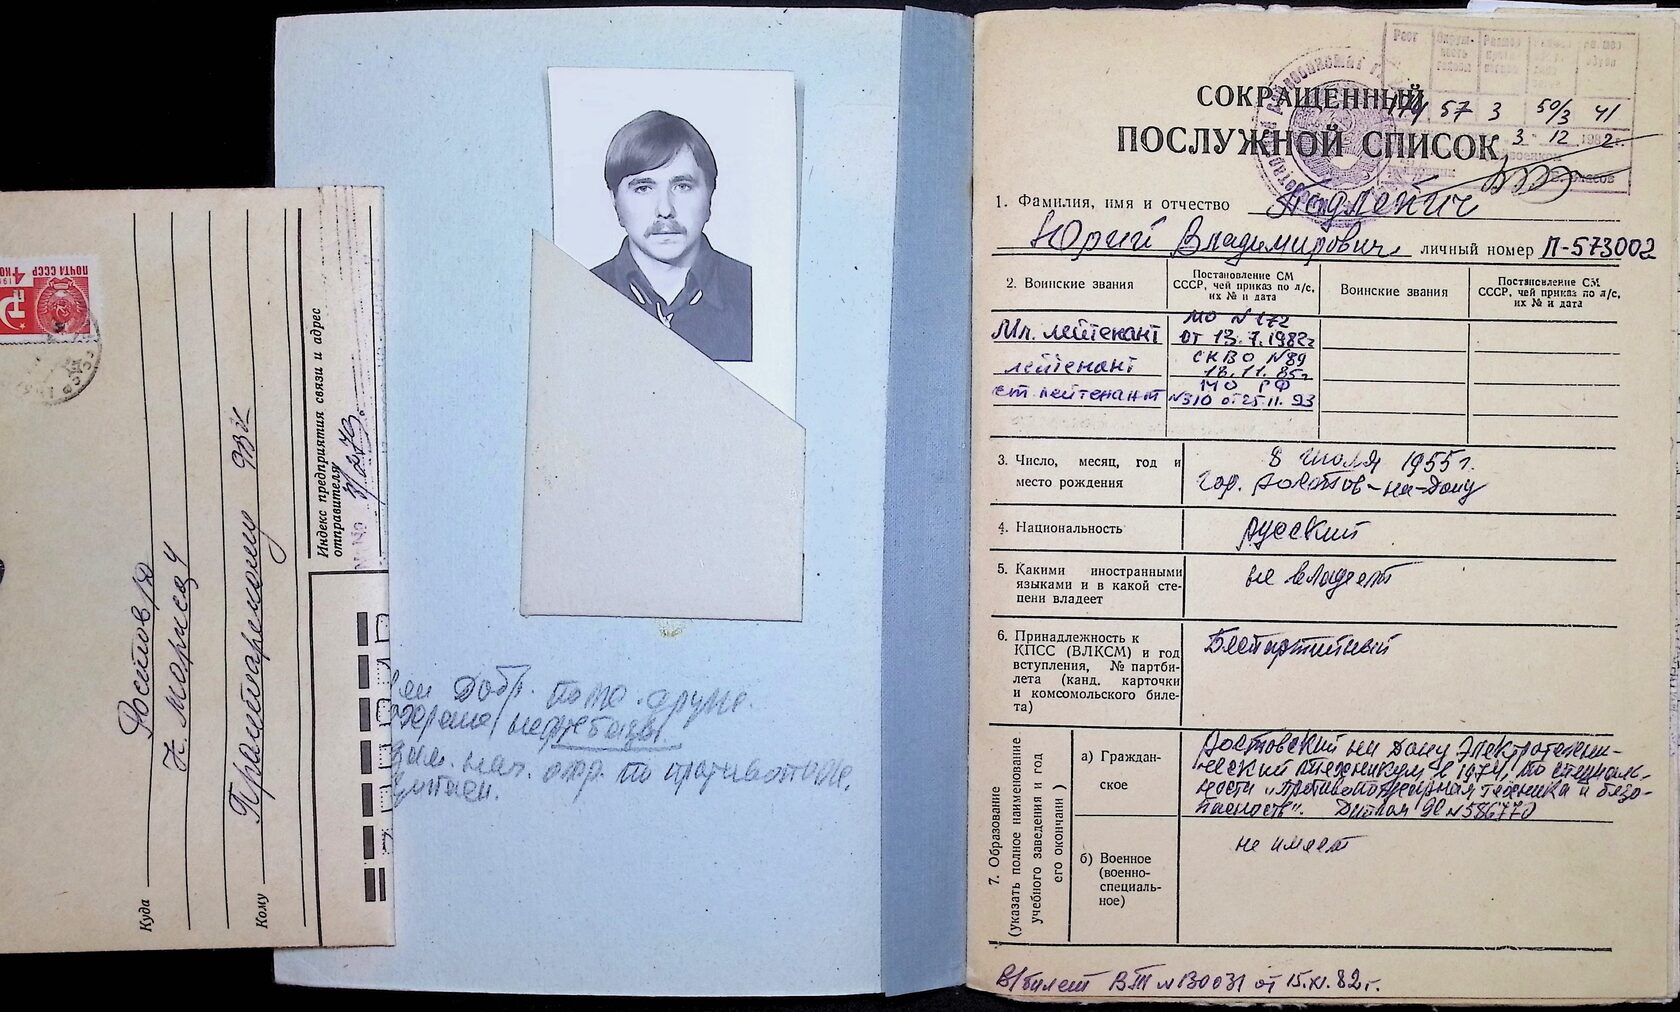 ПОЧТА СССР
4 КОП
Куда
Ростов н/Д
К. Марксу
Кому
Индекс предприятия связи и адрес
отправителя
Добр. пож. друж.
нефтебазы
нач. отр. по противопож.
СОКРАЩЕННЫЙ
ПОСЛУЖНОЙ СПИСОК
Рост
174 57 3 50/3 41
3 12 1982 г.
1. Фамилия, имя и отчество Павлевич
Юрий Владимирович личный номер П-573002
2. Воинские звания
Постановление СМ
СССР, чей приказ по л/с,
их № и дата
Воинские звания
Постановление СМ
СССР, чей приказ по л/с,
их № и дата
Мл. лейтенант
МО №172
от 13.7.1982г
лейтенант
СКВО №89
18.11.85г
ст. лейтенант
МО РФ
№310 от 25.11.93
3. Число, месяц, год и
место рождения
8 июля 1955 г.
гор. Ростов-на-Дону
4. Национальность
Русский
5. Какими иностранными
языками и в какой сте-
пени владеет
не владеет
6. Принадлежность к
КПСС (ВЛКСМ) и год
вступления, № партби-
лета (канд. карточки
и комсомольского биле-
та)
Беспартийный
7. Образование
(указать полное наименование
учебного заведения и год
его окончания)
а) Граждан-
ское
Ростовский на Дону Электротехни-
ческий техникум в 1974, по специаль-
ности „Противопожарная техника и безо-
пасность". Диплом №586770
б) Военное
(военно-
специаль-
ное)
не имеет
в/билет ВТ №130031 от 15.XI.82г.